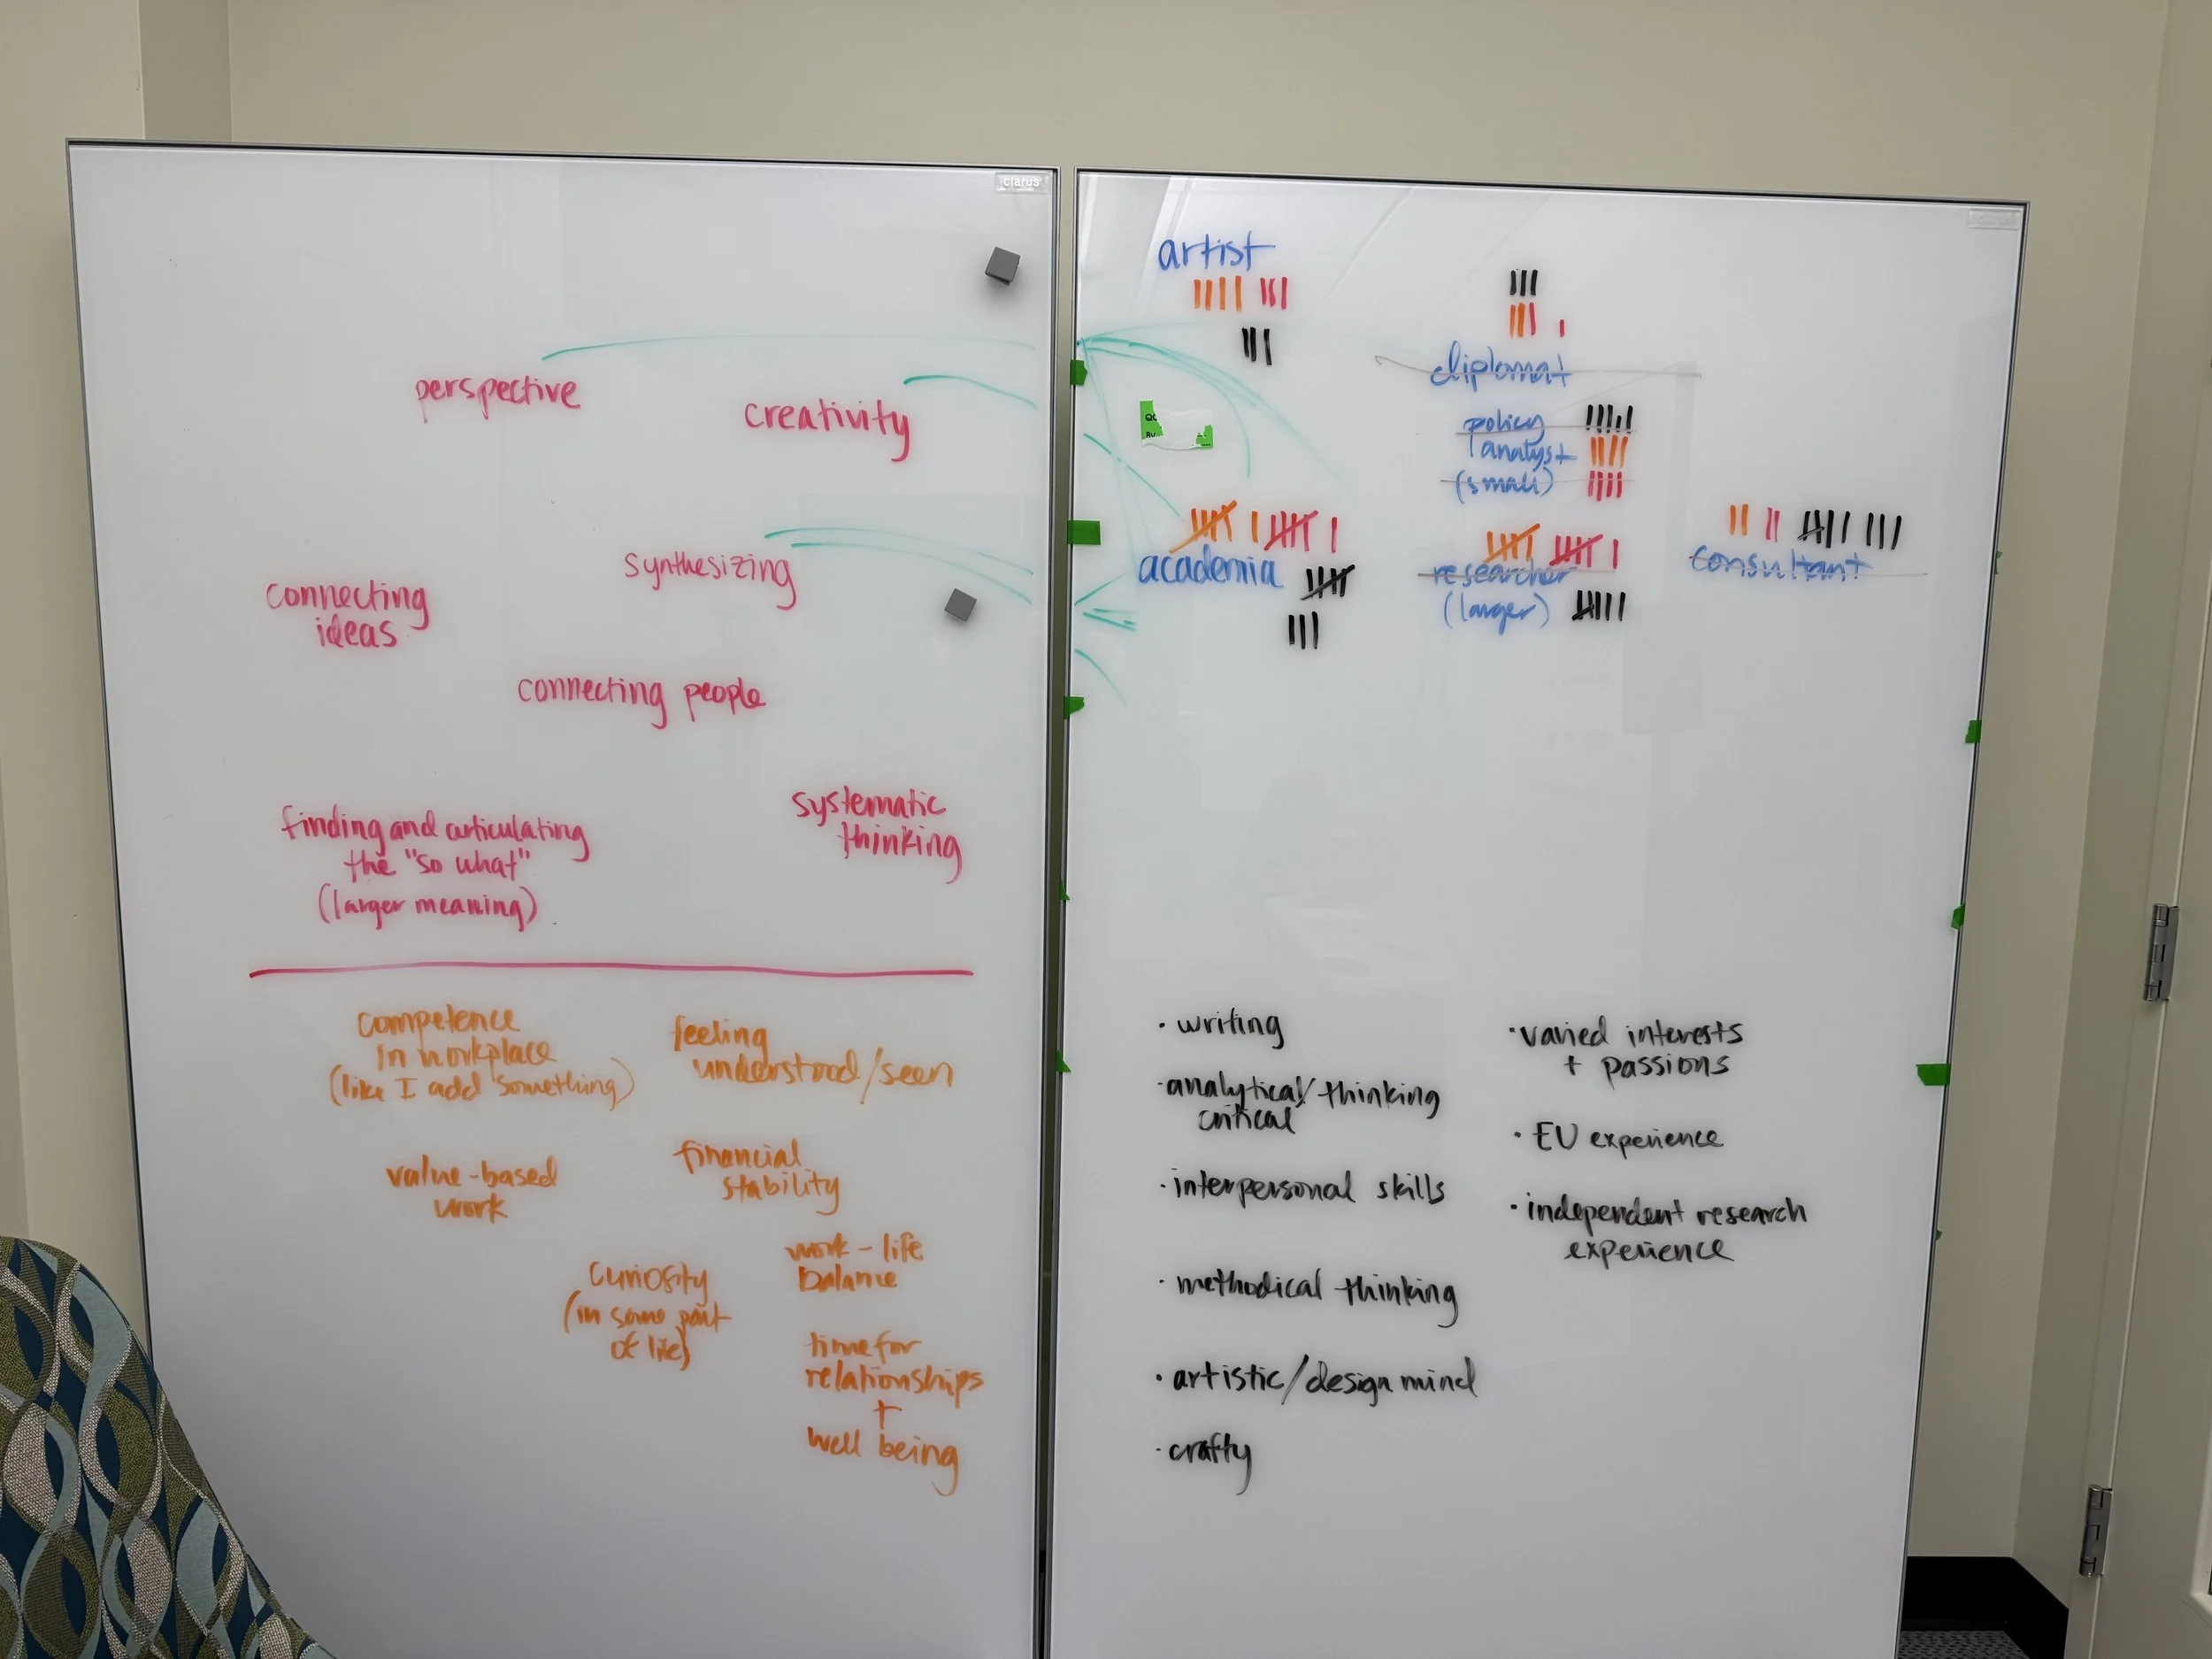 clarus
perspective
creativity
synthesizing
connecting
ideas
connecting people
finding and articulating
the "so what"
(larger meaning)
systematic
thinking
competence
in workplace
(like I add something)
feeling
understood/seen
value-based
work
financial
stability
curiosity
(in some part
of life)
work-life
balance
time for
relationships
+
well being
artist
diplomat
policy
analyst
(small)
academia
researcher
(larger)
consultant
• writing
• analytical/thinking
critical
• interpersonal skills
• methodical thinking
• artistic/design mind
• crafty
• varied interests
+ passions
• EU experience
• independent research
experience